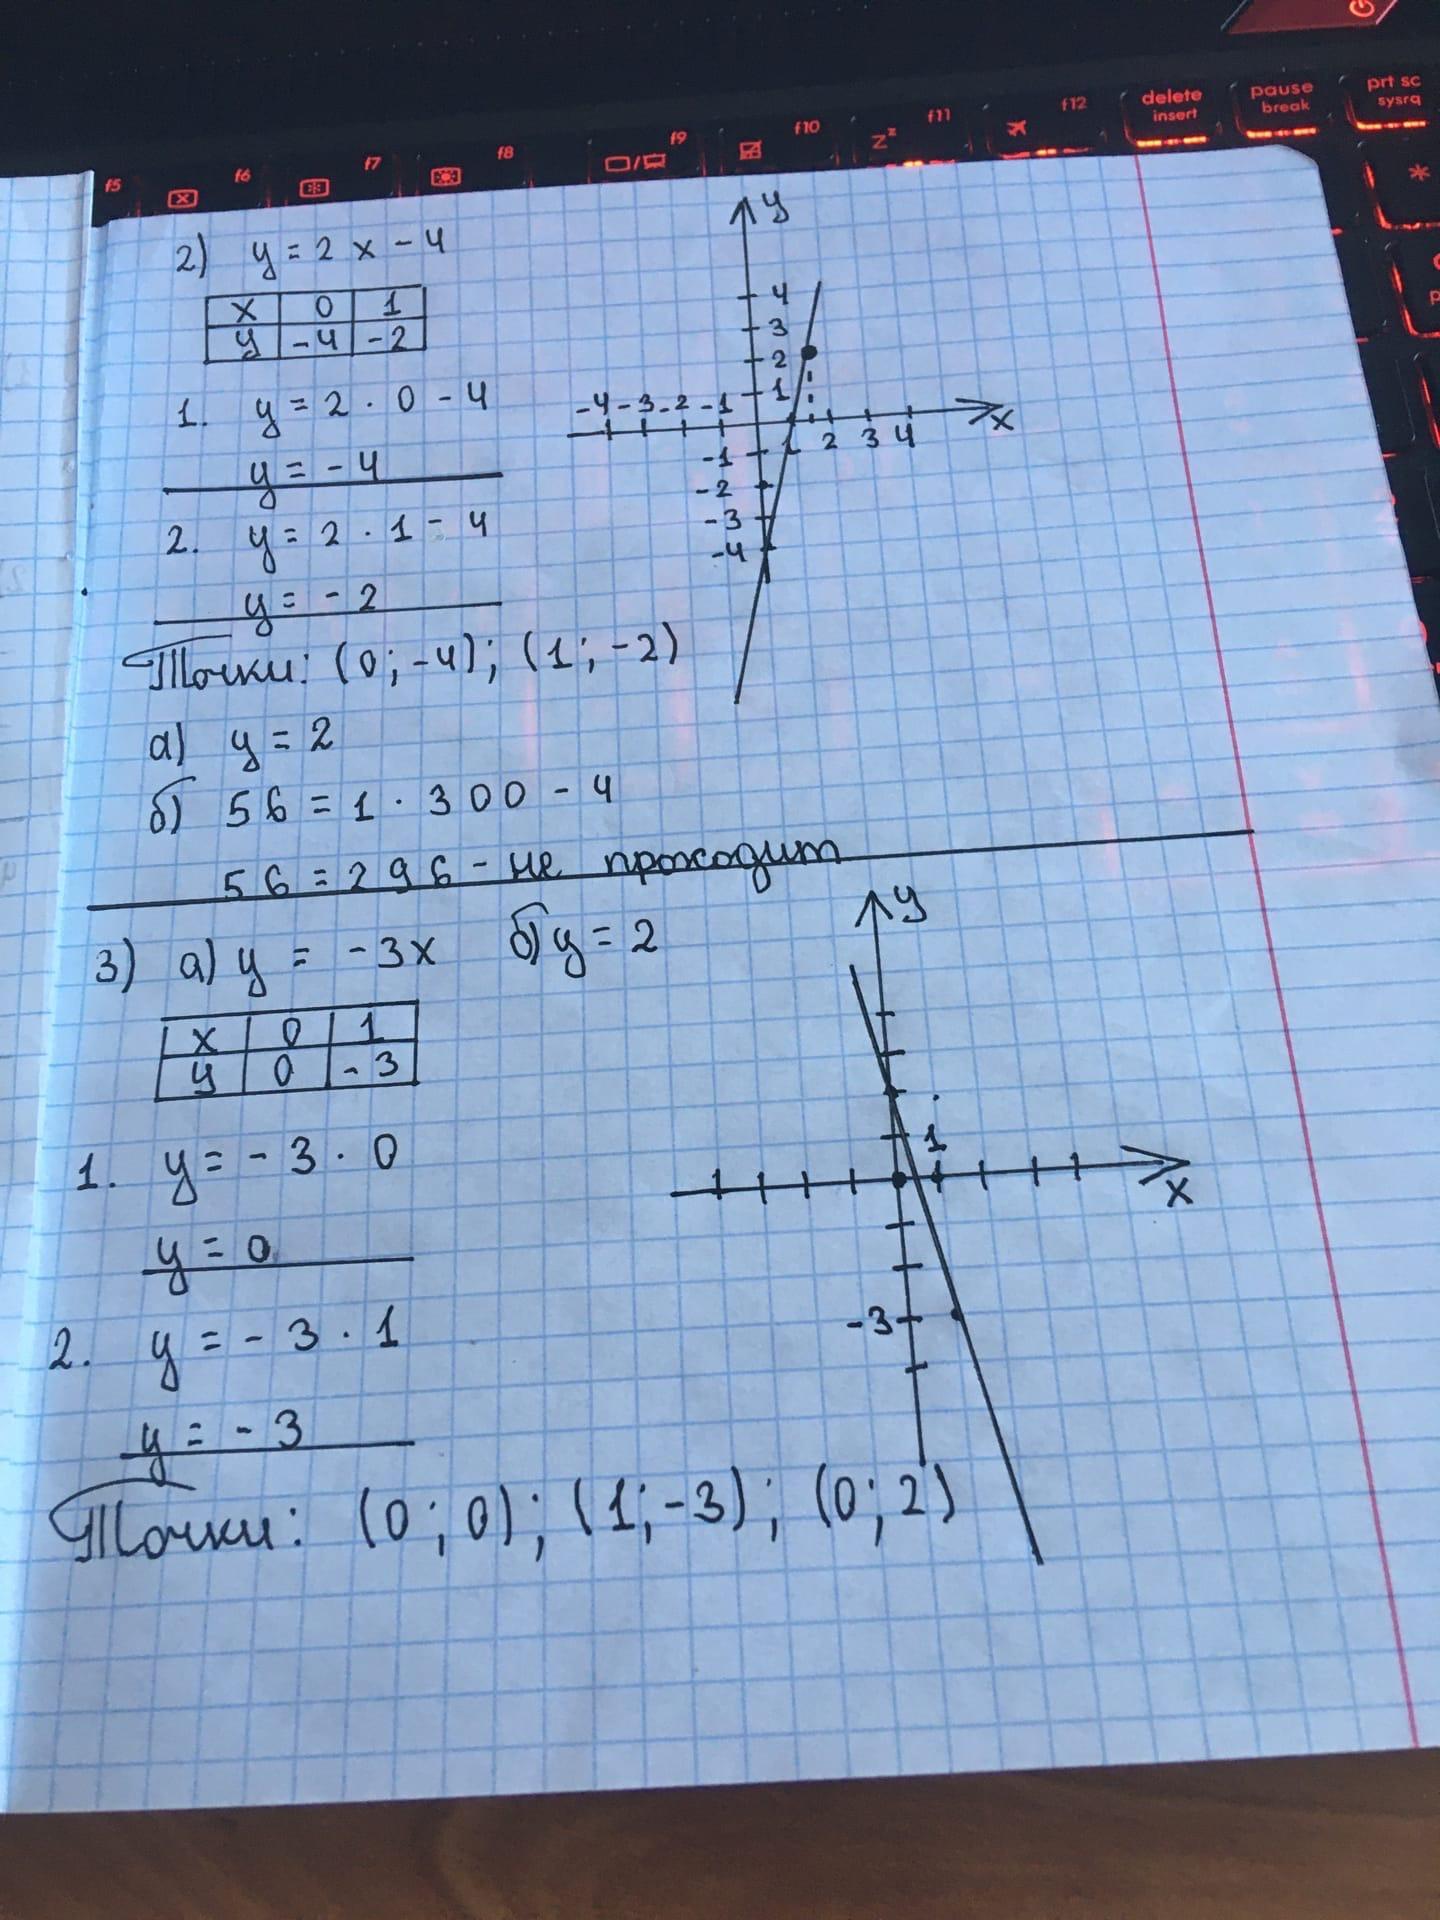 f5 f6 f7 f8 f9 f10 f11 f12 delete insert pause break prt sc sysrq
zᶻ
*
2) y = 2x - 4
x 0 1
y -4 -2
1. y = 2 · 0 - 4
y = - 4
2. y = 2 · 1 - 4
y = - 2
Точки: (0; -4); (1; -2)
а) y = 2
б) 56 = 1 · 300 - 4
56 = 296 - не проходит
y
4
3
2
1
-4 -3 -2 -1
1 2 3 4
x
-1
-2
-3
-4
3) а) y = -3x б) y = 2
x 0 1
y 0 -3
1. y = - 3 · 0
y = 0
2. y = - 3 · 1
y = - 3
Точки: (0; 0); (1; -3); (0; 2)
y
1
x
-3